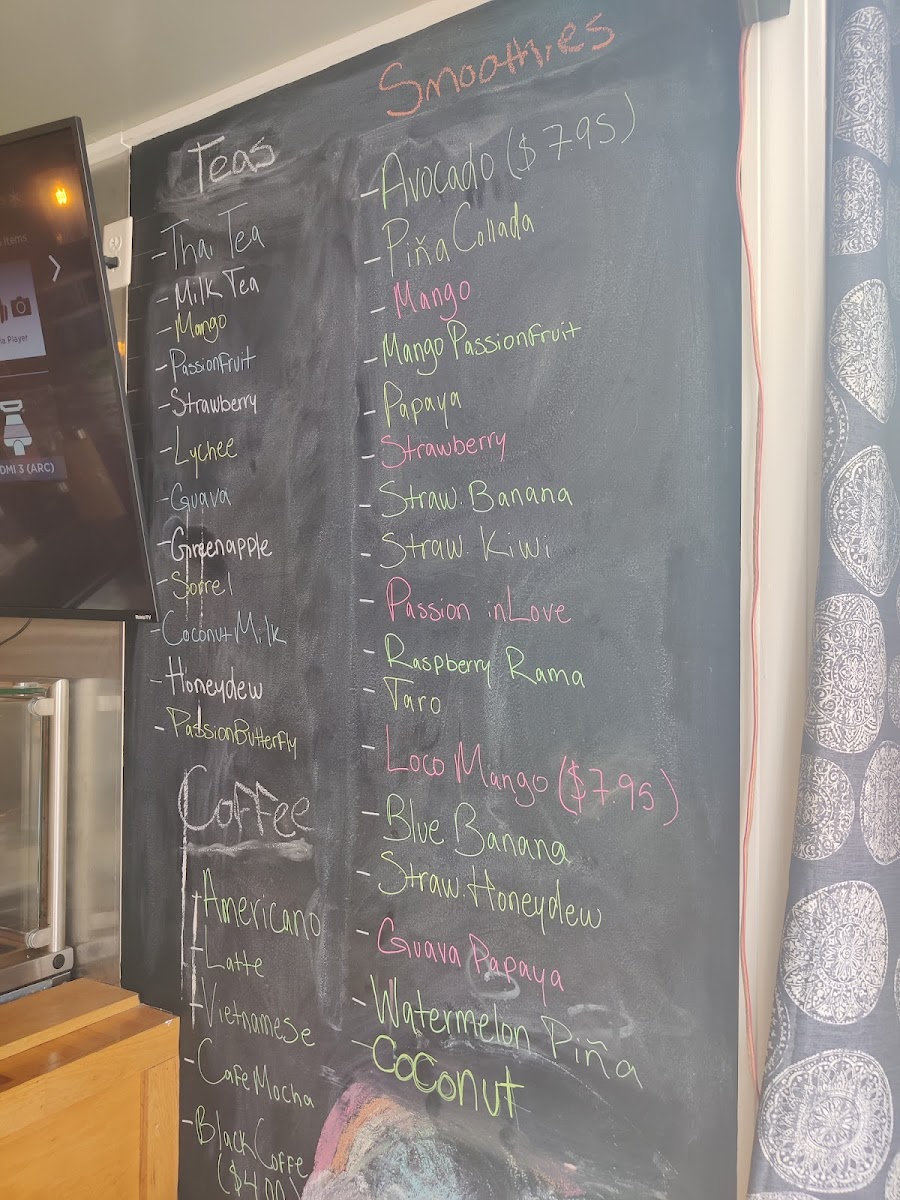 Teas
- Thai Tea
- Milk Tea
- Mango
- Passionfruit
- Strawberry
- Lychee
- Guava
- Greenapple
- Sorrel
- Coconut Milk
- Honeydew
- PassionButterfly
Coffee
- Americano
- Latte
- Vietnamese
- Cafe Mocha
- Black Coffe
($4.00)
Smoothies
- Avocado ($7.95)
- Piña Collada
- Mango
- Mango Passionfruit
- Papaya
- Strawberry
- Straw. Banana
- Straw. Kiwi
- Passion inLove
- Raspberry Rama
- Taro
- Loco Mango ($7.95)
- Blue Banana
- Straw. Honeydew
- Guava Papaya
- Watermelon Piña
- Coconut
Player
DMI 3 (ARC)